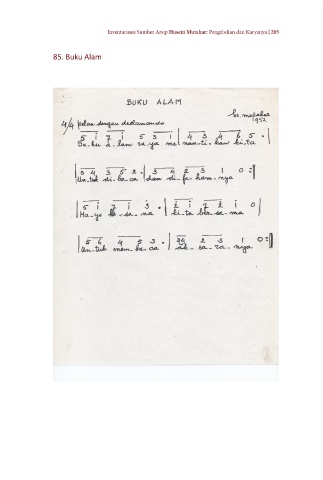 Inventarisasi Sumber Arsip Husein Mutahar: Pengabdian dan Karyanya | 205
85. Buku Alam
BUKU ALAM
hs. mutahar
1952
4/4 pelan dengan declamando
5 1 7 1 5 3 1 | 4 3 4 6 5 . |
Bu-ku a-lam ra-ya me-nan-ti-kan ki-ta
| 3 4 3 5 2 . | 3 4 2 3 1 0 :||
Un-tuk di-ba-ca dan di-fa-ham-nya
| 5 1 7 1 3 . | 2 1 7 2 1 0 |
Ma-yo ke-sa-na ki-ta ber-sa-ma
| 5 6 4 5 3 . | 34 2 3 1 0 :||
Un-tuk mem-ba-ca ak-sa-ra-nya